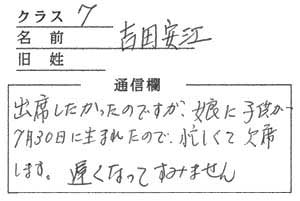 クラス 7
名前 吉田安江
旧姓
通信欄
出席したかったのですが、娘に子供が
7月30日に生まれたので、忙しくて欠席
します。遅くなってすみません